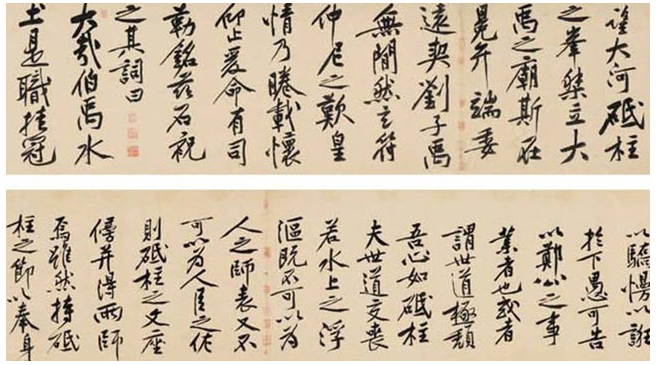 望大河砥柱
之峯桀立大
禹之廟斯在
冕弁端委
遠契劉子禹
無閒然玄符
仲尼之歎皇
情乃睠載懷
仰止爰命有司
勒銘茲石祝
之其詞曰
大哉伯禹水
土是職挂冠
以驕慢以誑
於下愚可告
以鄭公之事
業者也或者
謂世道極頹
吾心如砥柱
夫世道交喪
若水上之浮
漚既不可以為
人之師表又不
可以為人臣之佐
則砥柱之文座
傍并得兩師
焉雖然持砥
柱之節以奉身